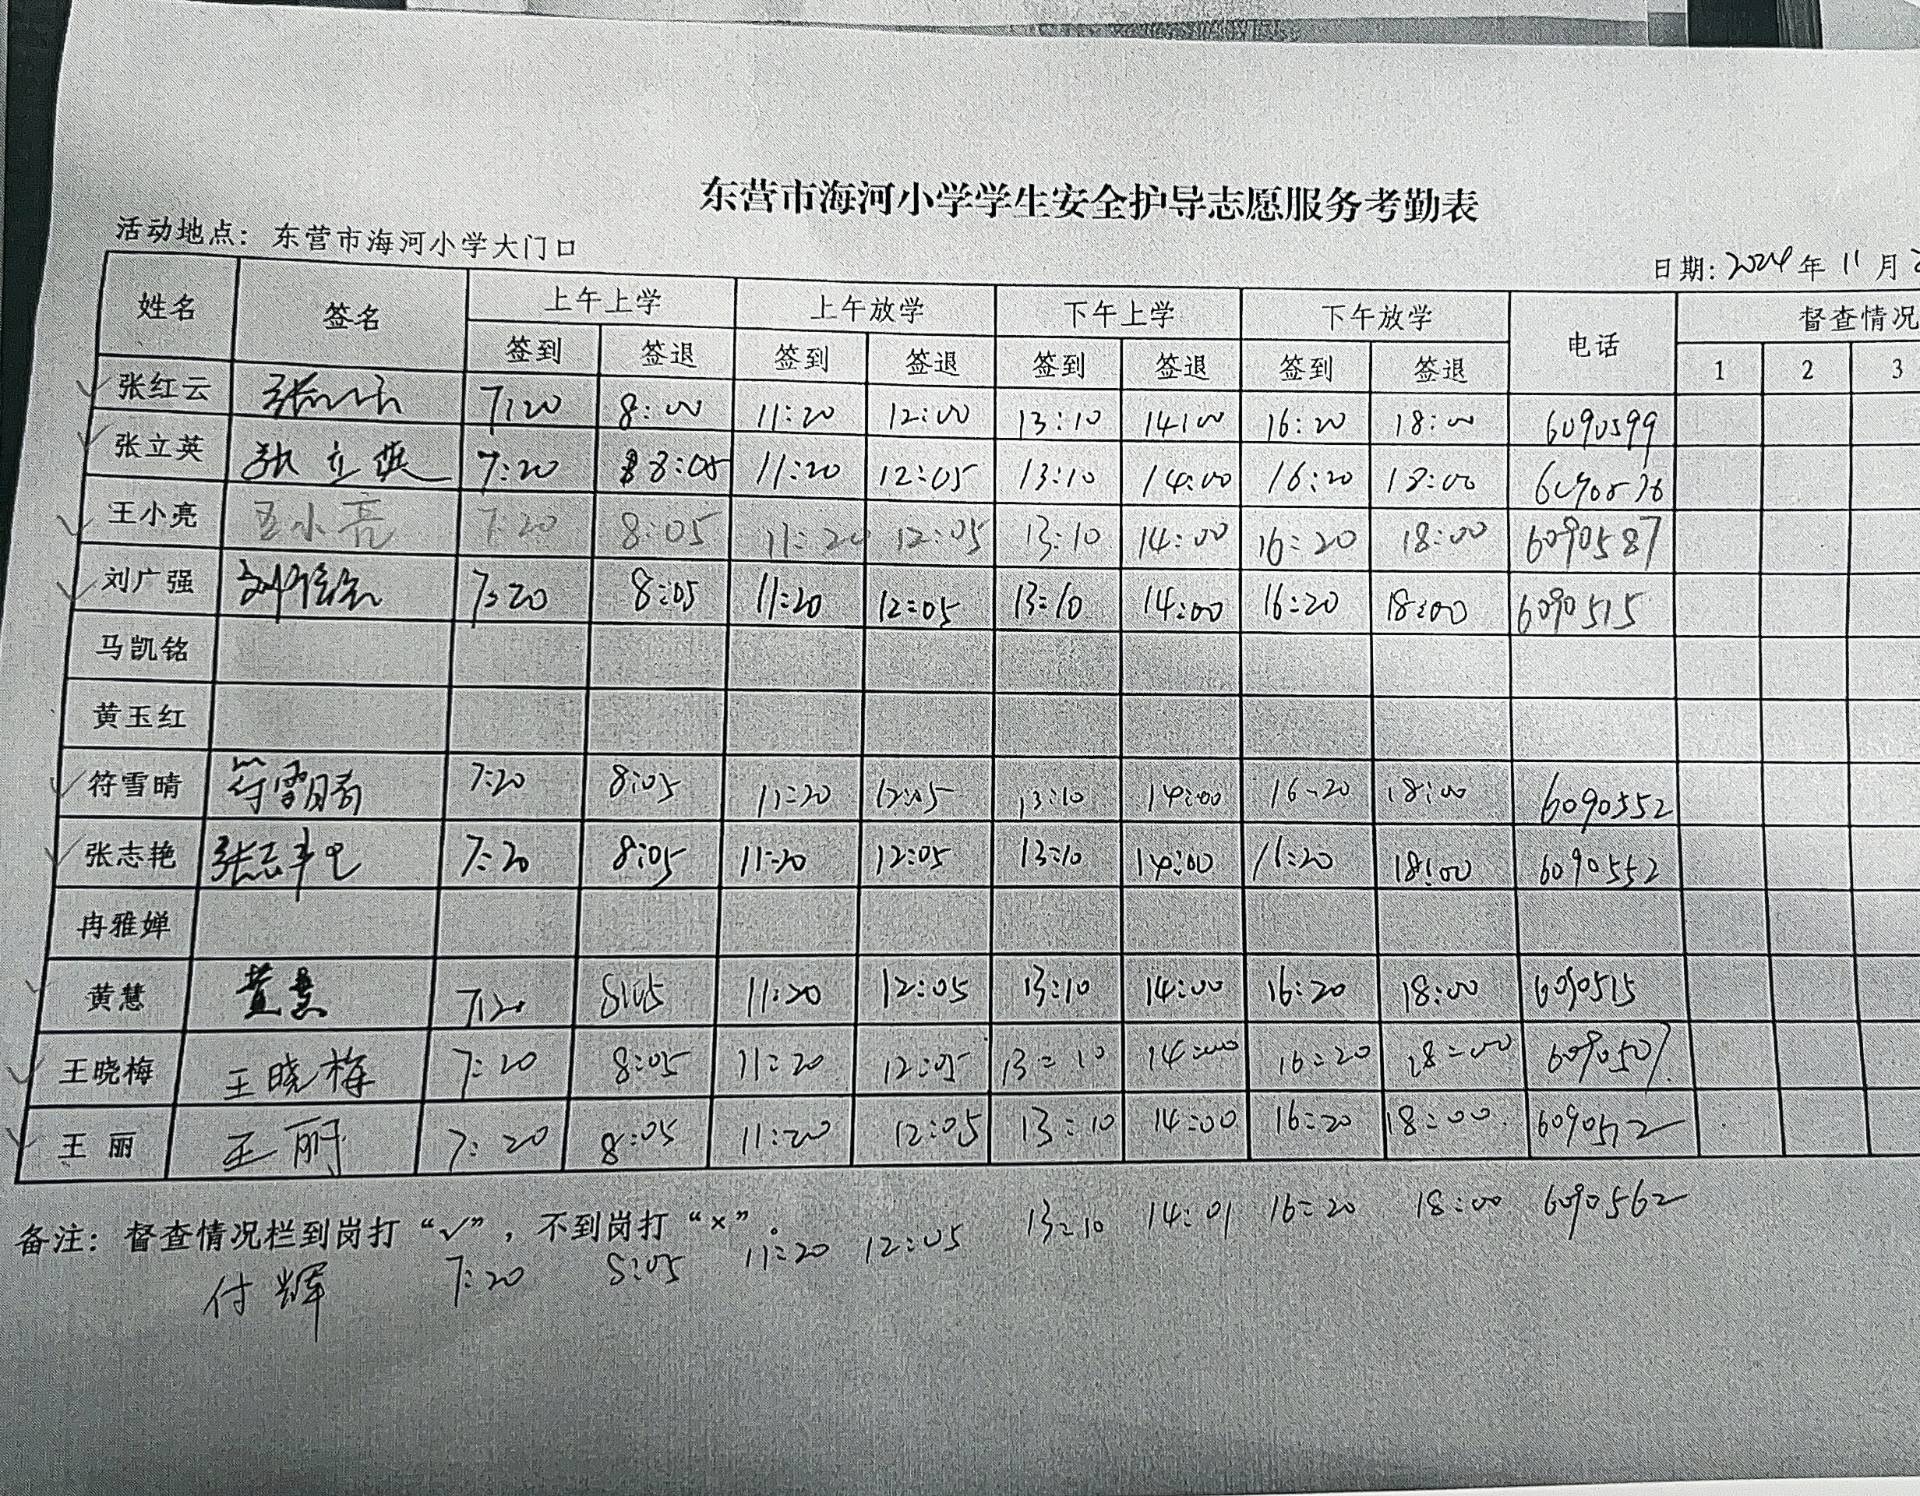 东营市海河小学学生安全护导志愿服务考勤表
活动地点：东营市海河小学大门口
日期：2024年11月2
姓名 签名 上午上学 上午放学 下午上学 下午放学 电话 督查情况
签到 签退 签到 签退 签到 签退 签到 签退 1 2 3
张红云 7:20 8:00 11:20 12:00 13:10 14:00 16:20 18:00 6090599
张立英 张立英 7:20 8:05 11:20 12:05 13:10 14:00 16:20 18:00
王小亮 王小亮 7:20 8:05 11:20 12:05 13:10 14:00 16:20 18:00 6090587
刘广强 刘广强 7:20 8:05 11:20 12:05 13:10 14:00 16:20 18:00 6090515
马凯铭
黄玉红
符雪晴 符雪晴 7:20 8:05 11:20 12:05 13:10 14:00 16:20 18:00 6090552
张志艳 张志艳 7:20 8:05 11:20 12:05 13:10 14:00 16:20 18:00 6090552
冉雅婵
黄慧 黄慧 7:20 8:05 11:20 12:05 13:10 14:00 16:20 18:00 6090515
王晓梅 王晓梅 7:20 8:05 11:20 12:05 13:10 14:00 16:20 18:00 6090507
王丽 王丽 7:20 8:05 11:20 12:05 13:10 14:00 16:20 18:00 6090512
备注：督查情况栏到岗打“√”，不到岗打“×”。
付辉 7:20 8:05 11:20 12:05 13:10 14:01 16:20 18:00 6090562